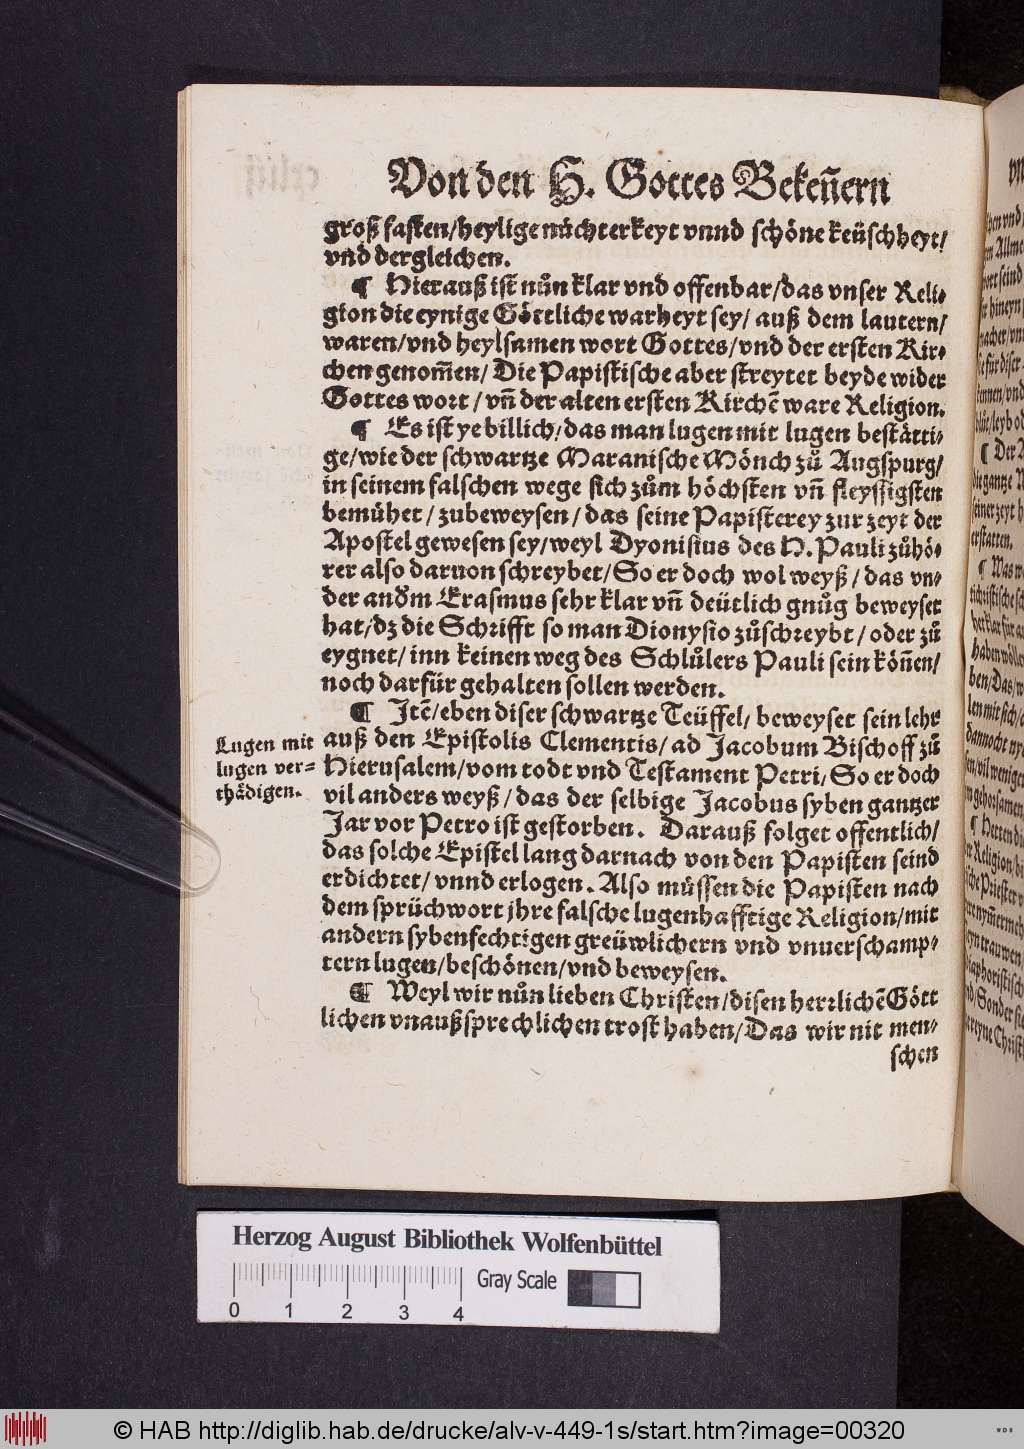 Von den H. Gottes Bekeñern
groß fasten/heylige nüchterkeyt vnnd schöne keüschheyt/
vnd dergleichen.
¶ Hierauß ist nůn klar vnd offenbar/das vnser Reli-
gion die eynige Göttliche warheyt sey/ auß dem lautern/
waren/vnd heylsamen wort Gottes/vnd der ersten Kir-
chen genom̃en/ Die Papistische aber streytet beyde wider
Gottes wort/ vñ der alten ersten Kirchẽ ware Religion.
¶ Es ist ye billich/das man lugen mit lugen bestätti-
ge/wie der schwartze Maranische Mönch zů Augspurg/
in seinem falschen wege sich zům höchsten vñ fleyssigsten
bemühet/ zubeweysen/ das seine Papisterey zur zeyt der
Apostel gewesen sey/weyl Dyonisius des H. Pauli zůhö-
rer also daruon schreybet/So er doch wol weyß/ das vn-
der andm̃ Erasmus sehr klar vñ deütlich gnůg beweyset
hat/dz die Schrifft so man Dionysio zůschreybt/ oder zů
eygnet/ inn keinen weg des Schůlers Pauli sein köñen/
noch darfür gehalten sollen werden.
¶ Jtẽ/eben diser schwartze Teüffel/ beweyset sein lehr
auß den Epistolis Clementis/ad Jacobum Bischoff zů
Hierusalem/vom todt vnd Testament Petri/So er doch
vil anders weyß/das der selbige Jacobus syben gantzer
Jar vor Petro ist gestorben. Darauß folget offentlich/
das solche Epistel lang darnach von den Papisten seind
erdichtet/ vnnd erlogen. Also müssen die Papisten nach
dem sprüchwort jhre falsche lugenhafftige Religion/mit
andern sybenfechtigen greüwlichern vnd vnuerschamp-
tern lugen/beschönen/vnd beweysen.
¶ Weyl wir nůn lieben Christen/disen herrlichẽ Gött
lichen vnaußsprechlichen trost haben/Das wir nit men-
schen
Lugen mit
lugen ver-
thädigen.
Herzog August Bibliothek Wolfenbüttel
0 1 2 3 4
Gray Scale
© HAB http://diglib.hab.de/drucke/alv-v-449-1s/start.htm?image=00320